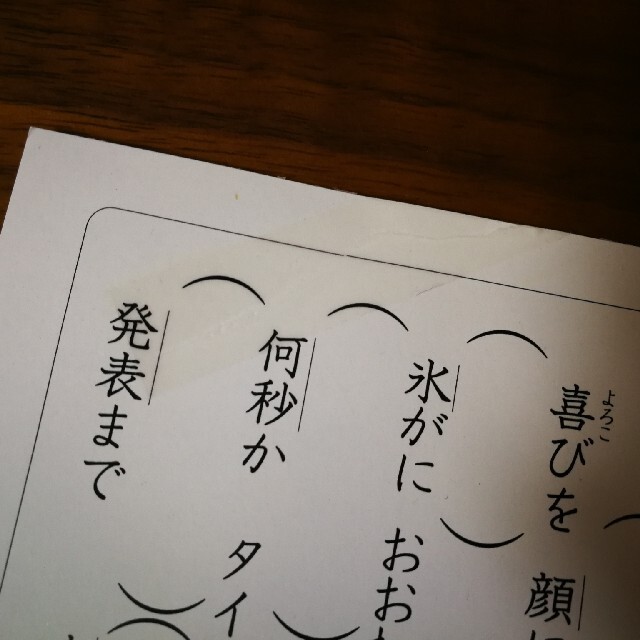 喜びを 顔
よろこ
氷がに おお
何秒か タイ
発表まで